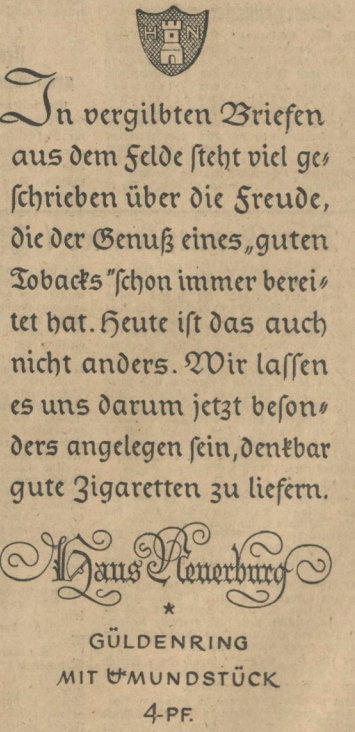 H N
In vergilbten Briefen
aus dem Felde steht viel ge-
schrieben über die Freude,
die der Genuß eines „guten
Tobacks" schon immer berei-
tet hat. Heute ist das auch
nicht anders. Wir lassen
es uns darum jetzt beson-
ders angelegen sein, denkbar
gute Zigaretten zu liefern.
Haus Neuerburg
*
GÜLDENRING
MIT MUNDSTÜCK
4-PF.